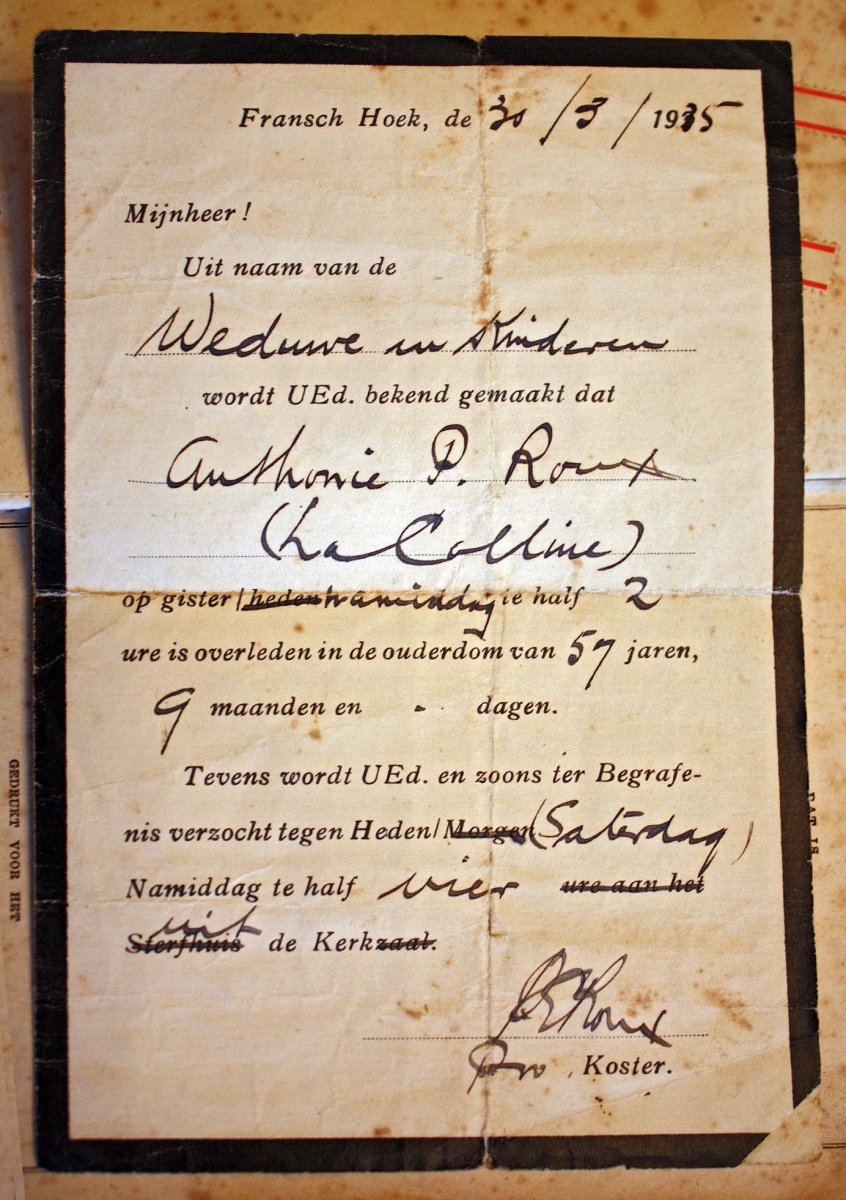 Fransch Hoek, de 30/3/1935
Mijnheer!
Uit naam van de
Weduwe en Kinderen
wordt UEd. bekend gemaakt dat
Anthonie P. Roux
(La Colline)
op gister/heden namiddag te half 2
ure is overleden in de ouderdom van 57 jaren,
9 maanden en - dagen.
Tevens wordt UEd. en zoons ter Begrafe-
nis verzocht tegen Heden/Morgen (Saterdag)
Namiddag te half vier ure aan het
Sterfhuis uit de Kerkzaal.
Roux
Pro Koster.
GEDRUKT VOOR HET
DAT IS